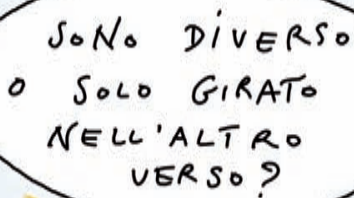 SONO DIVERSO
O SOLO GIRATO
NELL'ALTRO
VERSO?